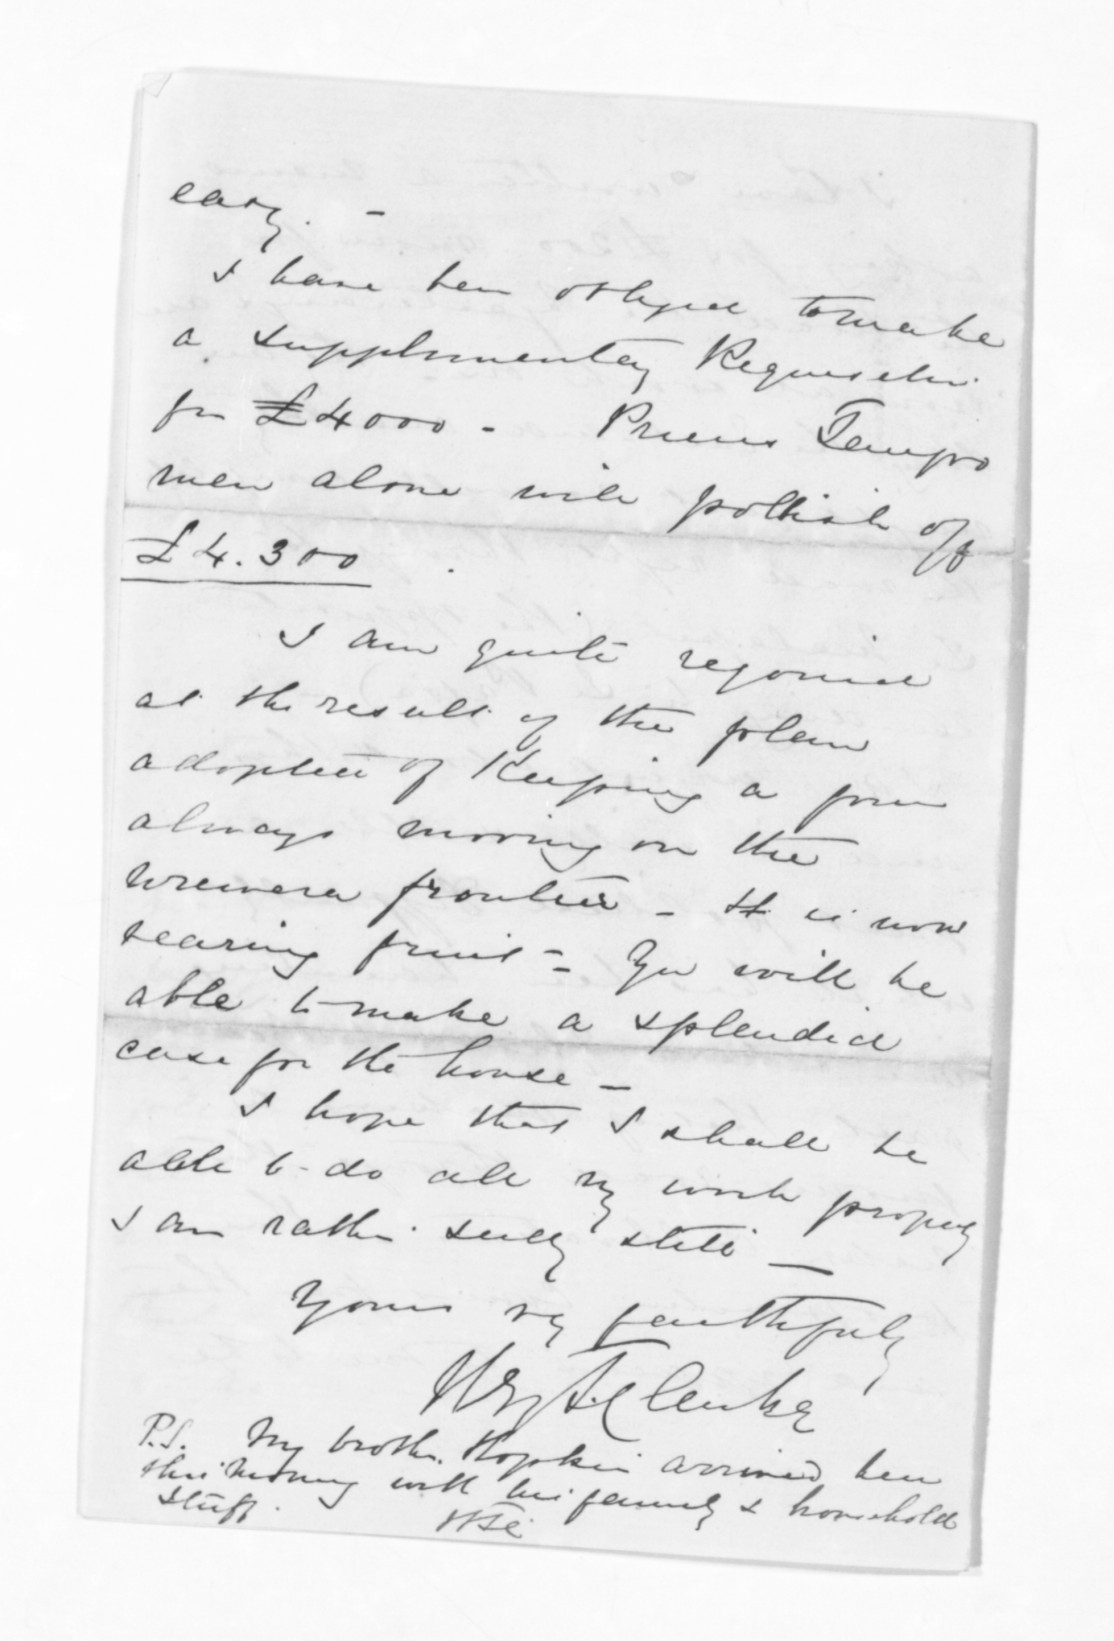 easy. -
I have been obliged to make
a supplementary Requisition
for £4000 - Tempo
men alone will pollish off
£4.300
I am quite rejoiced
at the result of the plan
adopted of Keeping a force
always moving on the
Urewera frontier - It is now
bearing fruit - You will be
able to make a splendid
case for the house -
I hope that I shall be
able to do all my work properly
I am rather seedy still -
Yours vy faithfully
Hy T. Clarke
P.S. My brother Hopkin arrived here
this morning with his family & household
stuff. HTC